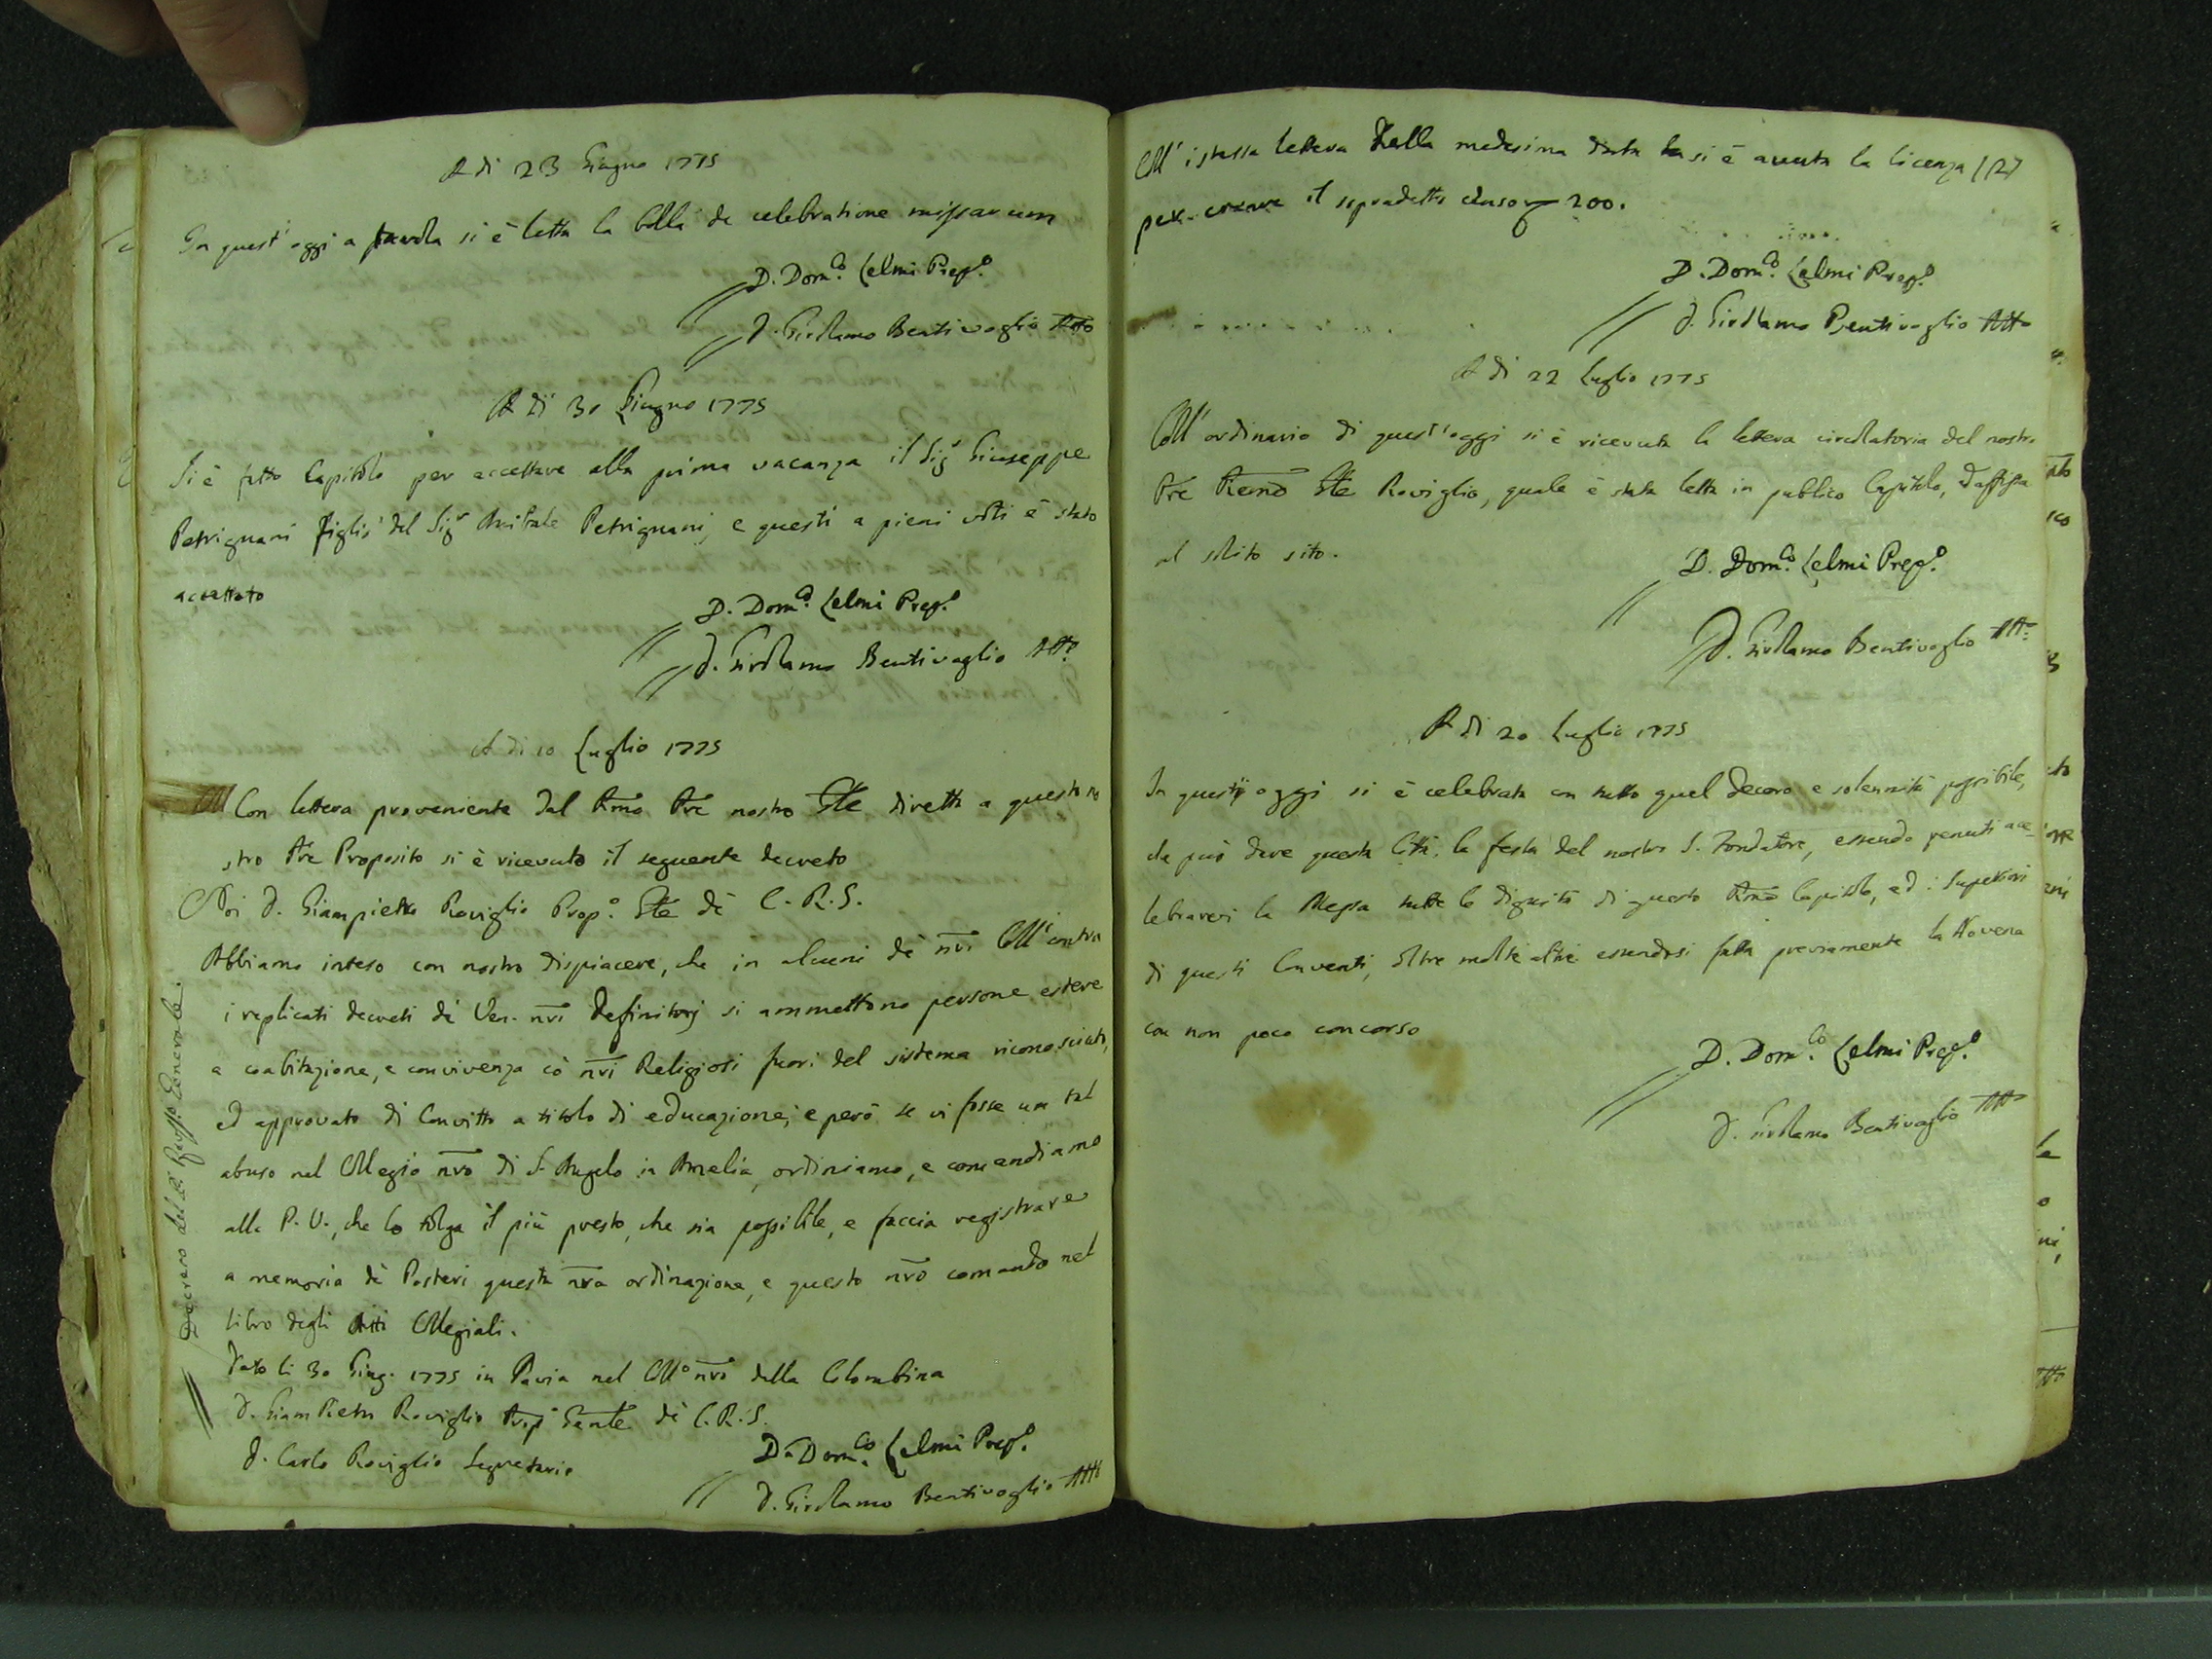 A di 23 Giugno 1775
In quest'oggi a tavola si è letta la bolla de celebratione missarum
D. Dom.co Celmi Prep.o
D. Girolamo Bentivoglio Att.o
A di 30 Giugno 1775
Si è fatto Capitolo per accettare alla prima vacanza il Sig.r Giuseppe
Petrignani figlio del Sig.r Petrignani, e questi a pieni voti è stato
accettato
D. Dom.co Celmi Prep.o
D. Girolamo Bentivoglio Att.o
A di 10 Luglio 1775
Con lettera proveniente dal Rmo Pre nostro Gle diretta a questo no
stro Pre Proposito si è ricevuto il seguente decreto
Noi D. Giampietro Roviglio Prep.o Gle de C. R. S.
Abbiamo inteso con nostro dispiacere, che in alcuni de nri Coll.i contra
i replicati decreti de Ven. nri Definitorj si ammettono persone estere
a coabitazione, e convivenza co' nri Religiosi fuori del sistema riconosciuto,
ed approvato di Convitto a titolo di educazione; e però se vi fosse un tal
abuso nel Collegio nro di S. Angelo in Amelia, ordiniamo, e comandiamo
alla P. V., che lo tolga il più presto, che sia possibile, e faccia registrare
a memoria de Posteri questa nra ordinazione, e questo nro comando nel
libro degli Atti Collegiali.
Dato li 30 Giug. 1775 in Pavia nel Coll.o nro della Colombina
D. Giam Pietro Roviglio Prep.o Genle de C. R. S.
D. Carlo Roviglio Segretario
D. Dom.co Celmi Prep.o
D. Girolamo Bentivoglio Att.o
Decreto del P. Generale.
Coll' istessa lettera della medesima data si è avuta la licenza
per il sopradetto 200.
D. Dom.co Celmi Prep.o
D. Girolamo Bentivoglio Att.o
A di 22 Luglio 1775
Coll' ordinario di quest'oggi si è ricevuta la lettera circolatoria del nostro
Pre Rmo Gle Roviglio, quale è stata letta in publico Capitolo, ed affissa
al solito sito.
D. Dom.co Celmi Prep.o
D. Girolamo Bentivoglio Att.o
A di 20 Luglio 1775
In quest'oggi si è celebrata con tutto quel decoro e solennità possibile,
che può dare questa Città, la festa del nostro S. Fondatore, essendo venuti a ce-
lebrarvi la Messa tutte le dignità di questo Rmo Capitolo, ed i Superiori
di questi Conventi, oltre molti altri essendosi fatta previamente la Novena
con non poco concorso
D. Dom.co Celmi Prep.o
D. Girolamo Bentivoglio Att.o